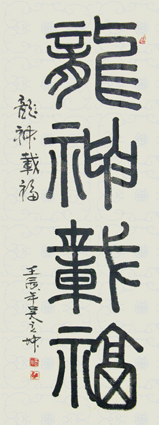 龍神載福
龍神載福
壬辰年吳之坤